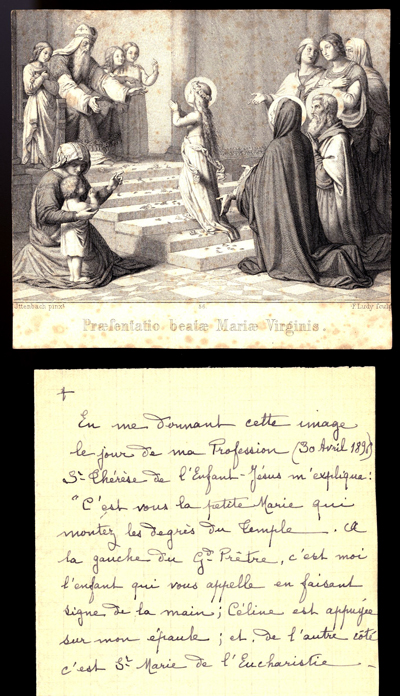 Ittenbach pinxt
F. Ludy sculp
Præsentatio beatæ Mariæ Virginis.
+
En me donnant cette image
le jour de ma Profession (30 Avril 1896)
Sr Thérèse de l'Enfant-Jésus m'explique:
"C'est vous la petite Marie qui
montez les degrès du Temple. A
la gauche du Gd Prêtre, c'est moi
l'enfant qui vous appelle en faisant
signe de la main; Céline est appuyée
sur mon épaule; et de l'autre côté
c'est Sr Marie de l'Eucharistie -